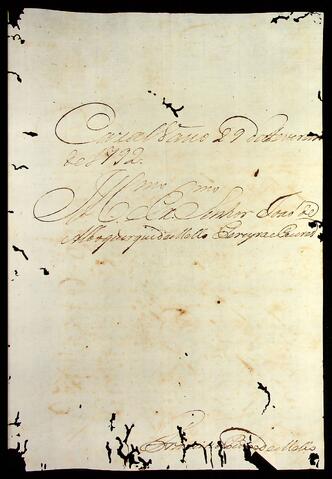 Cazal Vasco 29 de Fevereiro
de 1792.
Ill.mo e Ex.mo Senhor João de
Albuquerque de Mello Pereyra e Caceres
de Mello